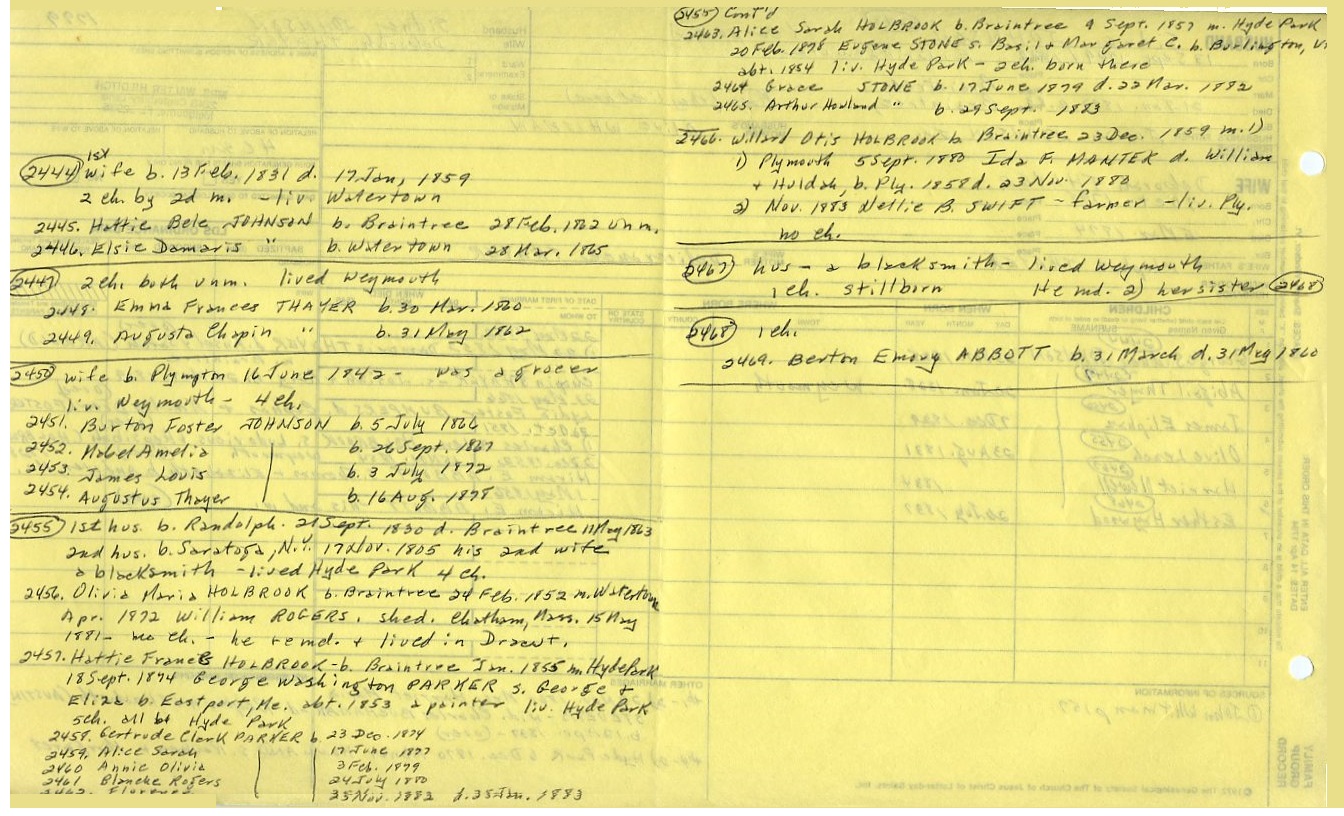 (2444) 1st wife b. 13 Feb. 1831 d. 17 Jan, 1859
2 ch. by 2d m. - liv. Watertown
2445. Hattie Bele JOHNSON b. Braintree 28 Feb. 1862 unm.
2446. Elsie Damaris " b. Watertown 28 Mar. 1865
(2447) 2ch. both unm. lived Weymouth
2448. Emma Frances THAYER b. 30 Mar. 1860
2449. Augusta Chapin " b. 31 May 1862
(2450) wife b. Plympton 16 June 1842 - was a grocer
liv. Weymouth - 4 ch.
2451. Burton Foster JOHNSON b. 5 July 1866
2452. Mabel Amelia b. 26 Sept. 1867
2453. James Louis b. 3 July 1872
2454. Augustus Thayer b. 16 Aug. 1878
(2455) 1st hus. b. Randolph. 21 Sept. 1830 d. Braintree 11 May 1863
2nd hus. b. Saratoga, N.Y. 17 Nov. 1805 his 2nd wife
a blacksmith - lived Hyde Park 4 ch.
2456. Olivia Maria HOLBROOK b. Braintree 24 Feb. 1852 m. Watertown
Apr. 1872 William ROGERS. she d. Chatham, Mass. 15 May
1881 - no ch. - he remd. + lived in Dracut.
2457. Hattie Frances HOLBROOK - b. Braintree Jan. 1855 m. Hyde Park
18 Sept. 1874 George Washington PARKER s. George +
Eliza b. Eastport, Me. abt. 1853 a painter liv. Hyde Park
5ch. all bt Hyde Park
2458. Gertrude Clark PARKER b. 23 Dec. 1874
2459. Alice Sarah 17 June 1877
2460 Annie Olivia 3 Feb. 1879
2461 Blanche Rogers 24 July 1880
2462. Florence 25 Nov. 1882 d. 25 Jan. 1883
(2455) Cont'd
2463. Alice Sarah HOLBROOK b. Braintree 9 Sept. 1857 m. Hyde Park
20 Feb. 1878 Eugene STONE s. Basil + Margaret C. b. Burlington, Vt
abt. 1854 liv. Hyde Park - 2ch. born there
2464 Grace STONE b. 17 June 1879 d. 22 Mar. 1882
2465. Arthur Howland " b. 29 Sept. 1883
2466. Willard Otis HOLBROOK b. Braintree 23 Dec. 1859 m. 1)
1) Plymouth 5 Sept. 1880 Ida F. MANTER d. William
+ Huldah, b. Ply. 1858 d. 23 Nov. 1880
2) Nov. 1883 Nellie B. SWIFT - farmer - liv. Ply.
no ch.
(2467) hus - a blacksmith - lived Weymouth
1ch. stillborn He md. 2) her sister (2468)
(2468) 1 ch.
2469. Berton Emory ABBOTT b. 31 March d. 31 May 1860